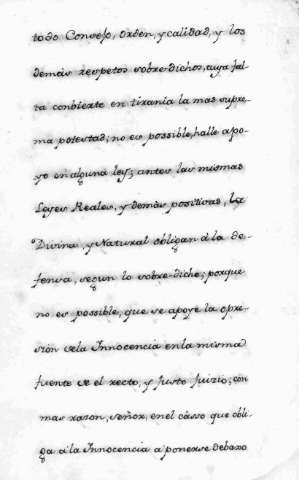 todo Consejo, Orden, y calidad, y los
demàs respetos sobre-dichos, cuya fal-
ta conbierte en tirania la mas supre-
ma potestad; no es possible, halle apo-
yo en alguna ley; antes las mismas
Leyes Reales, y demàs positivas, la
Divina, y Natural obligan à la de-
fensa, segun lo sobre-dicho; porque
no es possible, que se apoye la opre-
sion de la Innocencia en la misma
fuente de el recto, y justo Juizio; con
mas razon, señor, en el càsso que obli-
ga à la Innocencia a ponerse debaxo